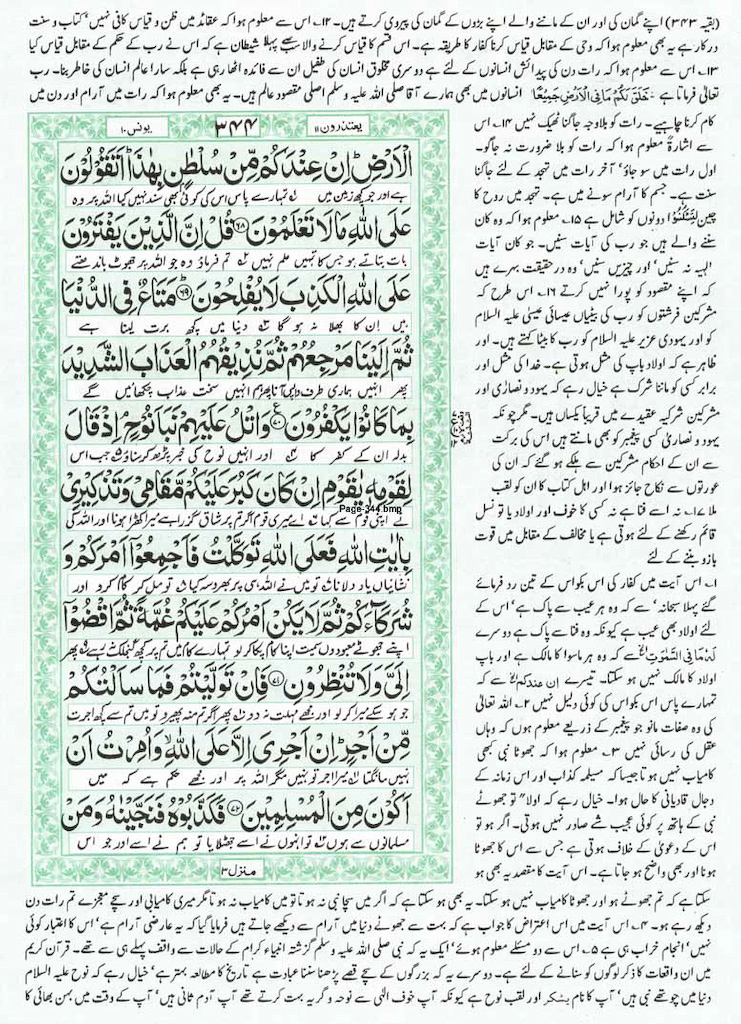 (بقیہ ۳۴۳) اپنے گمان کی اور ان کے ماننے والے اپنے بڑوں کے گمان کی پیروی کرتے ہیں۔ ۱۲۔ اس سے معلوم ہوا کہ عقائد میں ظن و قیاس کافی نہیں' کتاب و سنت
درکار ہے یہ بھی معلوم ہوا کہ وحی کے مقابل قیاس کرنا کفار کا طریقہ ہے۔ اس قسم کا قیاس کرنے والا سب سے پہلا شیطان ہے کہ اس نے رب کے حکم کے مقابل قیاس کیا
۱۳۔ اس سے معلوم ہوا کہ رات دن کی پیدائش انسانوں کے لئے ہے دوسری مخلوق انسان کی طفیل ان سے فائدہ اٹھا رہی ہے بلکہ سارا عالم انسان کی خاطر بنا۔ رب
تعالی فرماتا ہے۔ خَلَقَ لَكُمْ مَّا فِی الْاَرْضِ جَمِیْعًا انسانوں میں بھی ہمارے آقا صلی اللہ علیہ وسلم اصلی مقصود عالم ہیں۔ یہ بھی معلوم ہوا کہ رات میں آرام اور دن میں
یعتذرون ۱۱
۳۴۴
یونس ۱۰
الْاَرْضِ اِنْ عِنْدَكُمْ مِّنْ سُلْطٰنٍ بِهٰذَا اَتَقُوْلُوْنَ
ہے اور جو کچھ زمین میں تمہارے پاس اس کی کوئی بھی سند نہیں کیا اللہ پر وہ
عَلَى اللّٰهِ مَا لَا تَعْلَمُوْنَ ۶۸ قُلْ اِنَّ الَّذِیْنَ یَفْتَرُوْنَ
بات بتاتے ہو جس کا تمہیں علم نہیں تم فرماؤ وہ جو اللہ پر جھوٹ باندھتے
عَلَى اللّٰهِ الْكَذِبَ لَا یُفْلِحُوْنَ ۶۹ مَتَاعٌ فِی الدُّنْیَا
ہیں ان کا بھلا نہ ہو گا دنیا میں کچھ برت لینا ہے
ثُمَّ اِلَیْنَا مَرْجِعُهُمْ ثُمَّ نُذِیْقُهُمُ الْعَذَابَ الشَّدِیْدَ
پھر انہیں ہماری طرف واپس آنا پھر ہم انہیں سخت عذاب چکھائیں گے
بِمَا كَانُوْا یَكْفُرُوْنَ ۷۰ وَاتْلُ عَلَیْهِمْ نَبَاَ نُوْحٍ اِذْ قَالَ
بدلہ ان کے کفر کا اور انہیں نوح کی خبر پڑھ کر سناؤ جب اس
لِقَوْمِهٖ یٰقَوْمِ اِنْ كَانَ كَبُرَ عَلَیْكُمْ مَّقَامِیْ وَتَذْكِیْرِیْ
Page-344.bmp
نے اپنی قوم سے کہا اے میری قوم اگر تم پر شاق گزرا ہے میرا کھڑا ہونا اور اللہ کی
بِاٰیٰتِ اللّٰهِ فَعَلَى اللّٰهِ تَوَكَّلْتُ فَاَجْمِعُوْا اَمْرَكُمْ وَ
نشانیاں یاد دلانا تو میں نے اللہ ہی پر بھروسہ کیا تو مل کر کام کرو اور
شُرَكَآءَكُمْ ثُمَّ لَا یَكُنْ اَمْرُكُمْ عَلَیْكُمْ غُمَّةً ثُمَّ اقْضُوْا
اپنے جھوٹے معبودوں سمیت اپنا کام پکا کر لو تمہارے کام میں تم پر کچھ گنجلک نہ رہے پھر
اِلَیَّ وَلَا تُنْظِرُوْنِ ۷۱ فَاِنْ تَوَلَّیْتُمْ فَمَا سَاَلْتُكُمْ
جو ہو سکے میرا کر لو اور مجھے مہلت نہ دو پھر اگر تم منہ پھیرو تو میں تم سے کچھ اجرت
مِّنْ اَجْرٍ اِنْ اَجْرِیَ اِلَّا عَلَى اللّٰهِ وَاُمِرْتُ اَنْ
نہیں مانگتا میرا اجر تو نہیں مگر اللہ پر اور مجھے حکم ہے کہ میں
اَكُوْنَ مِنَ الْمُسْلِمِیْنَ ۷۲ فَكَذَّبُوْهُ فَنَجَّیْنٰهُ وَمَنْ
مسلمانوں سے ہوں تو انہوں نے اسے جھٹلایا تو ہم نے اسے اور جو اس
منزل ۳
کام کرنا چاہیے۔ رات کو بلاوجہ جاگنا ٹھیک نہیں ۱۴۔ اس
سے اشارۃً معلوم ہوا کہ رات کو بلا ضرورت نہ جاگو۔
اول رات میں سو جاؤ' آخر رات میں تہجد کے لئے جاگنا
سنت ہے۔ جسم کا آرام سونے میں ہے۔ تہجد میں روح کا
چین لِتَسْكُنُوْا دونوں کو شامل ہے ۱۵۔ معلوم ہوا کہ وہ کان
سننے والے ہیں جو رب کی آیات سنیں۔ جو کان آیات
الٰہیہ نہ سنیں' اور چیزیں سنیں' وہ در حقیقت بہرے ہیں
کہ اپنے مقصود کو پورا نہیں کرتے ۱۶۔ اس طرح کہ
مشرکین فرشتوں کو رب کی بیٹیاں عیسائی عیسیٰ علیہ السلام
کو اور یہودی عزیر علیہ السلام کو رب کا بیٹا کہتے ہیں۔ اور
ظاہر ہے کہ اولاد باپ کی مثل ہوتی ہے۔ خدا کی مثل اور
برابر کسی کو ماننا شرک ہے خیال رہے کہ یہود و نصاریٰ اور
مشرکین شرکیہ عقیدے میں قریبا یکساں ہیں۔ مگر چونکہ
یہود و نصاریٰ کسی پیغمبر کو بھی مانتے ہیں اس کی برکت
سے ان کے احکام مشرکین سے ہلکے ہو گئے کہ ان کی
عورتوں سے نکاح جائز ہوا اور اہل کتاب کا ان کو لقب
ملا ۱۷۔ نہ اسے فنا ہے نہ کسی کا خوف اور اولاد یا تو نسل
قائم رکھنے کے لئے ہوتی ہے یا مخالف کے مقابل میں قوت
بازو بننے کے لئے
۱۔ اس آیت میں کفار کی اس بکواس کے تین رد فرمائے
گئے پہلا سبحانہ' سے کہ وہ ہر عیب سے پاک ہے' اس کے
لئے اولاد بھی عیب ہے کیونکہ وہ فنا سے پاک ہے دوسرے
لَهٗ مَا فِی السَّمٰوٰتِ سے کہ وہ ہر ماسوا کا مالک ہے اور باپ
اولاد کا مالک نہیں ہو سکتا۔ تیسرے اِنْ عِنْدَكُمْ سے کہ
تمہارے پاس اس بکواس کی کوئی دلیل نہیں ۲۔ اللہ تعالیٰ
کی وہ صفات مانو جو پیغمبر کے ذریعے معلوم ہوں کہ وہاں
عقل کی رسائی نہیں ۳۔ معلوم ہوا کہ جھوٹا نبی کبھی
کامیاب نہیں ہوتا جیسا کہ مسیلمہ کذاب اور اس زمانہ کے
دجال قادیانی کا حال ہوا۔ خیال رہے کہ اولا" تو جھوٹے
نبی کے ہاتھ پر کوئی عجیب شے صادر نہیں ہوتی۔ اگر ہو تو
اس کے دعویٰ کے خلاف ہوتی ہے جس سے اس کا جھوٹا
ہونا اور بھی واضح ہو جاتا ہے۔ اس آیت کا مقصد یہ بھی ہو
سکتا ہے کہ تم جھوٹے ہو اور جھوٹا کامیاب نہیں ہو سکتا۔ یہ بھی ہو سکتا ہے کہ اگر میں سچا نبی نہ ہوتا تو میں کامیاب نہ ہوتا مگر میری کامیابی اور سچے معجزے تم رات دن
دیکھ رہے ہو۔ ۴۔ اس آیت میں اس اعتراض کا جواب ہے کہ بہت سے جھوٹے دنیا میں آرام سے دیکھے جاتے ہیں فرمایا گیا کہ یہ عارضی آرام ہے' اس کا اعتبار کوئی
نہیں' انجام خراب ہی ہے ۵۔ اس سے دو مسئلے معلوم ہوئے' ایک یہ کہ نبی صلی اللہ علیہ وسلم گزشتہ انبیاء کرام کے حالات سے واقف پہلے ہی سے تھے۔ قرآن کریم
میں ان واقعات کا ذکر لوگوں کو سنانے کے لئے ہے۔ دوسرے یہ کہ بزرگوں کے سچے قصے پڑھنا سننا عبادت ہے تاریخ کا مطالعہ بہتر ہے' خیال رہے کہ نوح علیہ السلام
دنیا میں چوتھے نبی ہیں' آپ کا نام یشکر اور لقب نوح ہے کیونکہ آپ خوف الٰہی سے نوحہ و گریہ بہت کرتے تھے آپ آدم ثانی ہیں' آپ کے وقت میں بہن بھائی کا